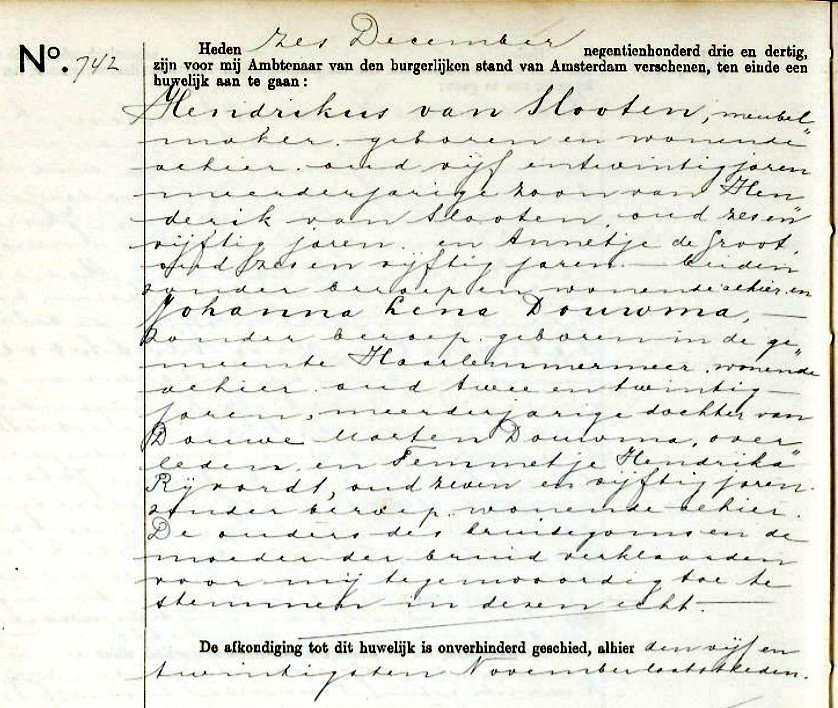 No. 742
Heden zes December negentienhonderd drie en dertig,
zijn voor mij Ambtenaar van den burgerlijken stand van Amsterdam verschenen, ten einde een
huwelijk aan te gaan:
Hendrikus van Slooten, meubel"
maker, geboren en wonende
alhier, oud vijf en twintig jaren
meerderjarige zoon van Hen"
derik van Slooten, oud zes en
vijftig jaren, en Annetje de Groot,
oud zes en vijftig jaren — beiden
zonder beroep en wonende alhier, en
Johanna Lena Douwma, —
zonder beroep, geboren in de ge"
meente Haarlemmermeer, wonende
alhier, oud twee en twintig —
jaren, meerderjarige dochter van
Douwe Marten Douwma, over"
leden, en Femmetje Hendrika
Rijvordt, oud zeven en vijftig jaren.
zonder beroep, wonende alhier.
De ouders des bruidegoms en de
moeder der bruid verklaarden
voor mij tegenwoordig toe te
stemmen in dezen echt. —
De afkondiging tot dit huwelijk is onverhinderd geschied, alhier den vijf en
twintigsten November laatstleden.